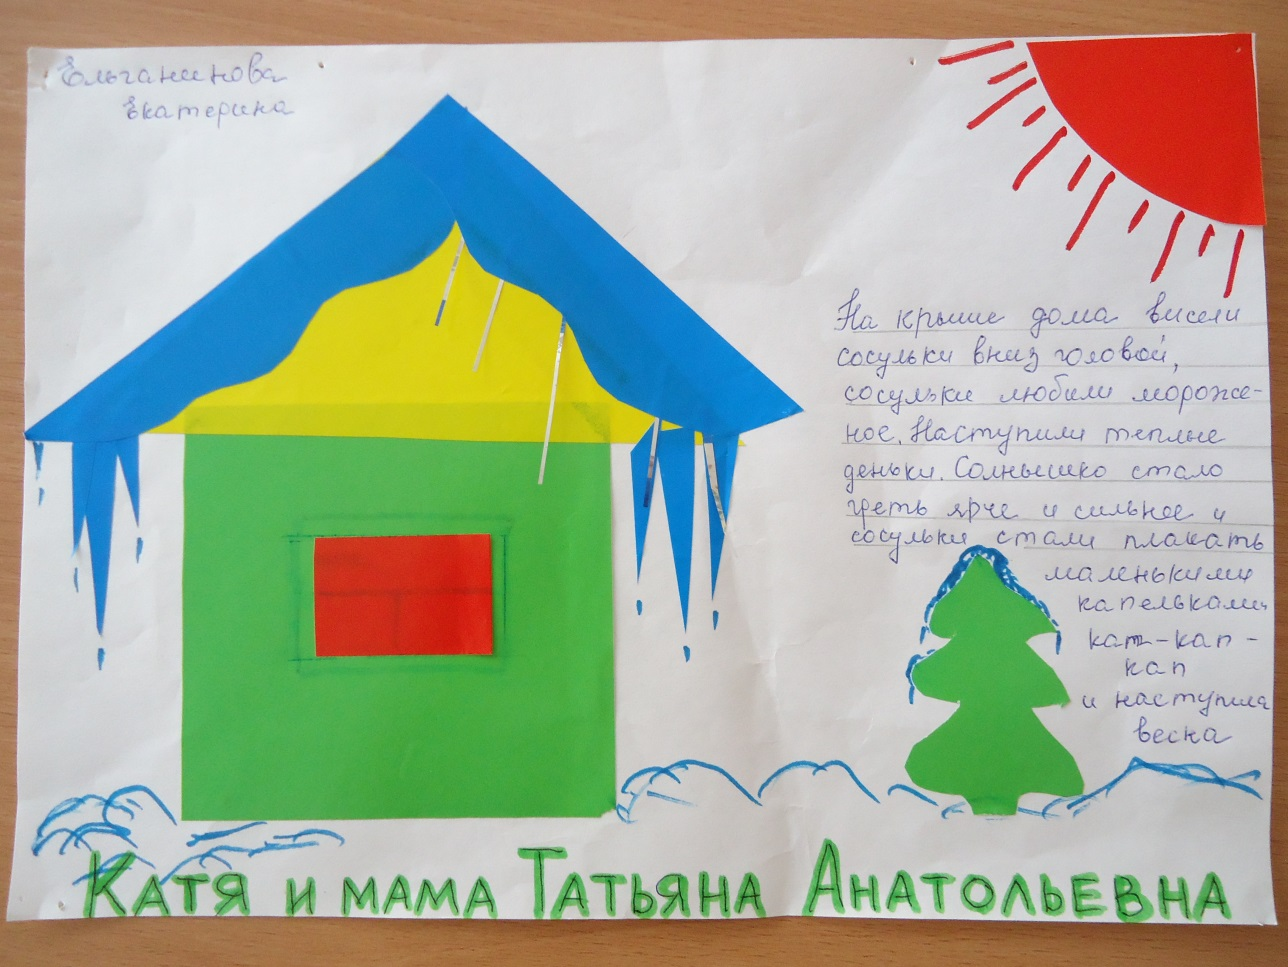 Ельганинова
Екатерина
На крыше дома висели
сосульки вниз головой,
сосульки любили мороже-
ное. Наступили теплые
деньки. Солнышко стало
греть ярче и сильнее и
сосульки стали плакать
маленькими
капельками
кап-кап-
кап
и наступила
весна
Катя и мама Татьяна Анатольевна